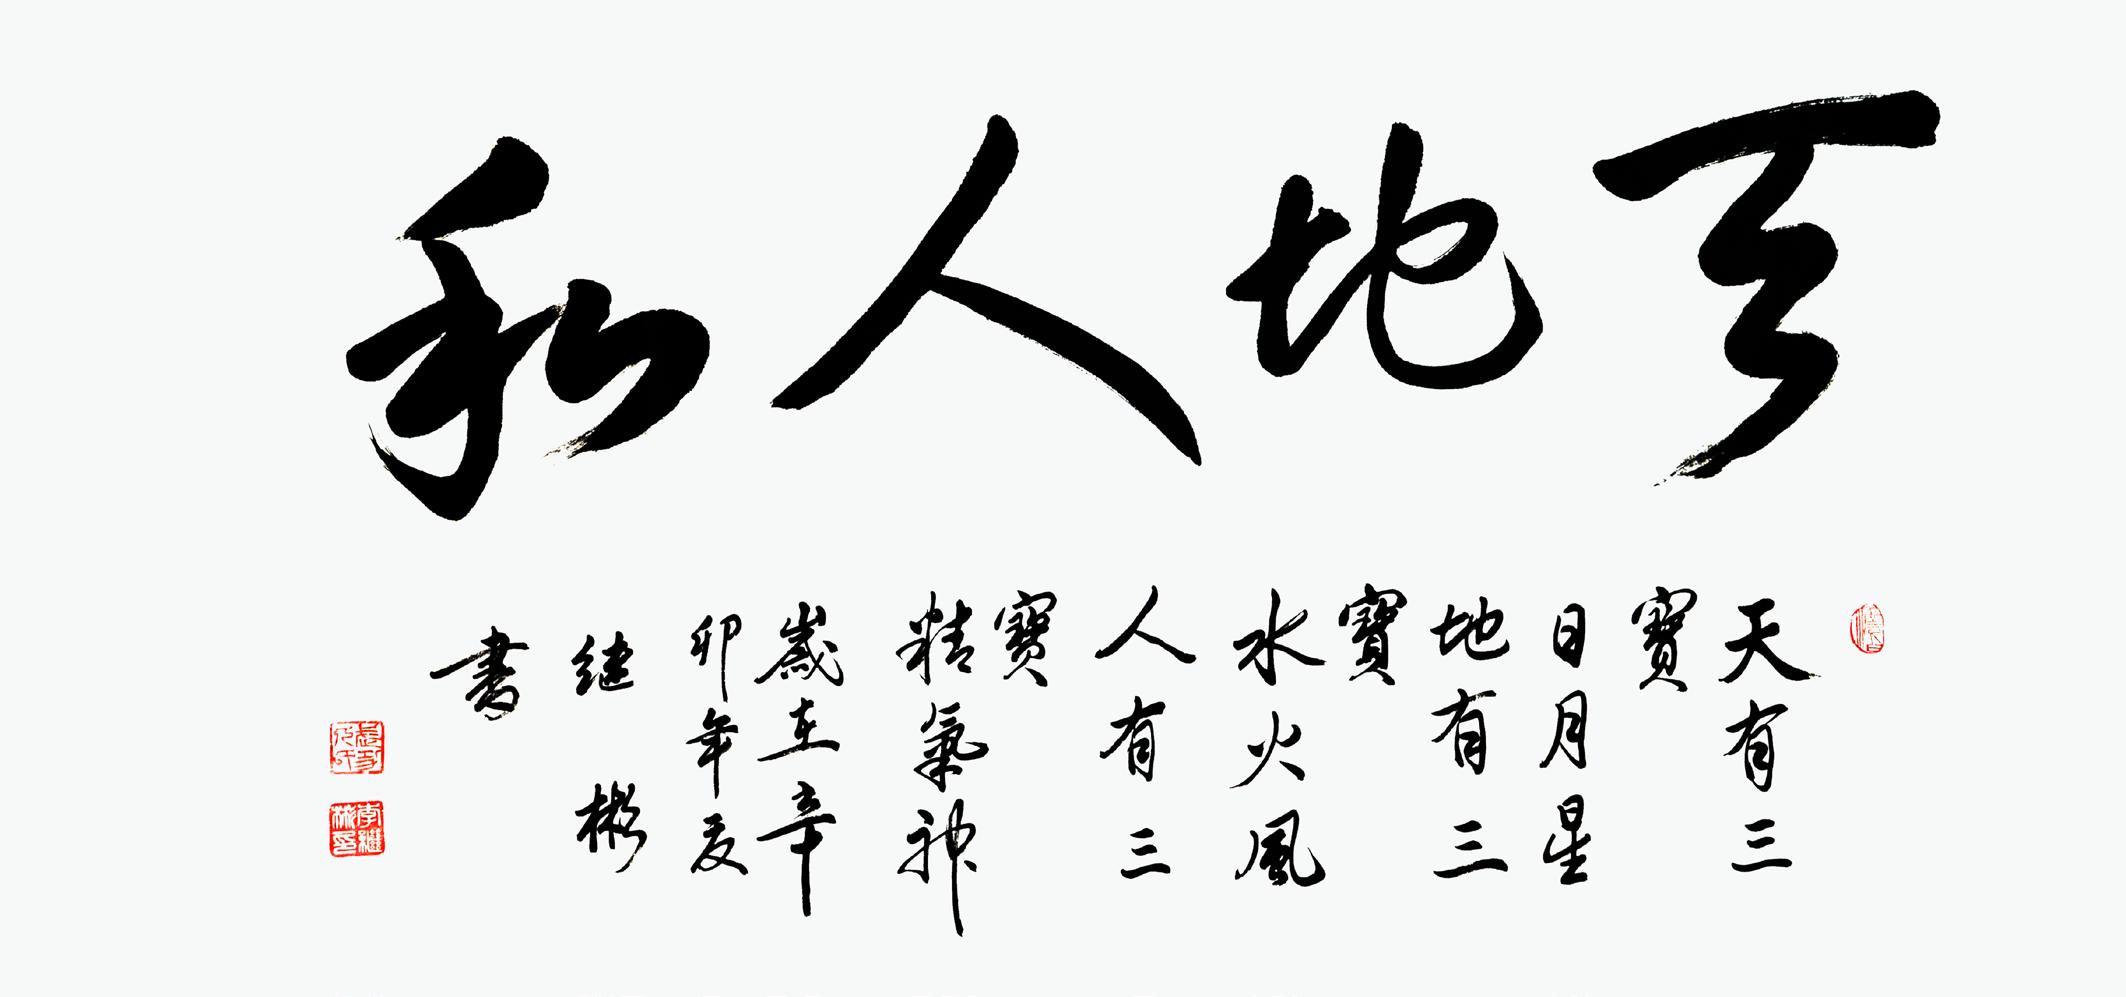 天地人和
天有三
寶
日月星
地有三
寶
水火風
人有三
寶
精氣神
歲在辛
卯年夏
继彬
書
李繼彬印